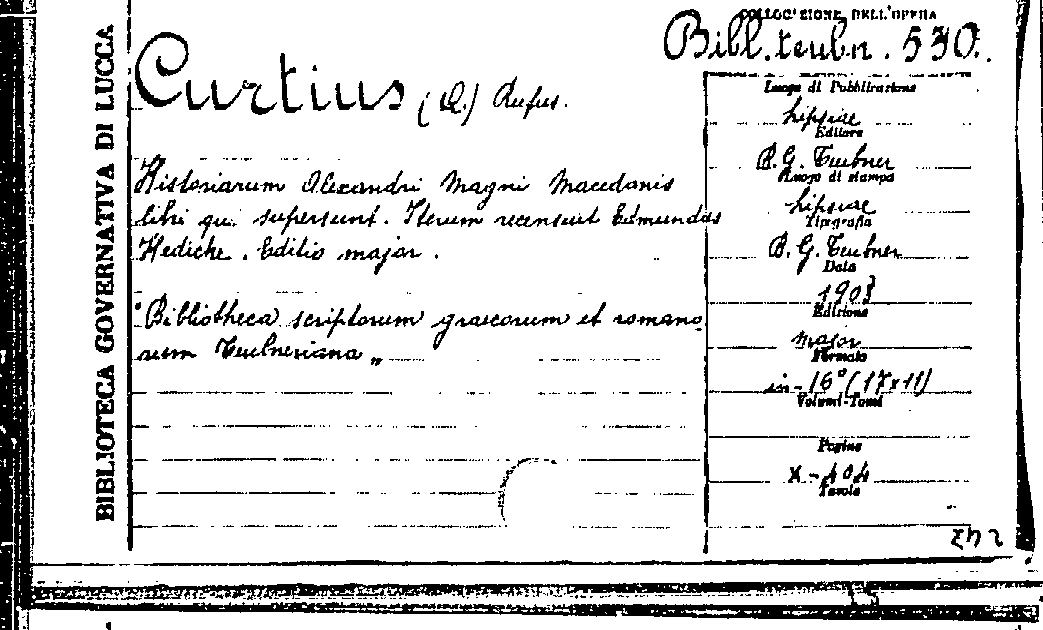 BIBLIOTECA GOVERNATIVA DI LUCCA
COLLOCAZIONE DELL'OPERA
Bibl. teubn. 530.
Curtius (Q.) Rufus.
Historiarum Alexandri Magni Macedonis
libri qui supersunt. Iterum recensuit Edmundus
Hediche. Editio major.
"Bibliotheca scriptorum graecorum et romano
rum Teubneriana„
Luogo di Pubblicazione
Lipsiae
Editore
B. G. Teubner
Luogo di stampa
Lipsiae
Tipografia
B. G. Teubner
Data
1903
Edizione
major
Formato
in-16° (17x11)
Volumi-Tomi
Pagine
X-404
Tavole